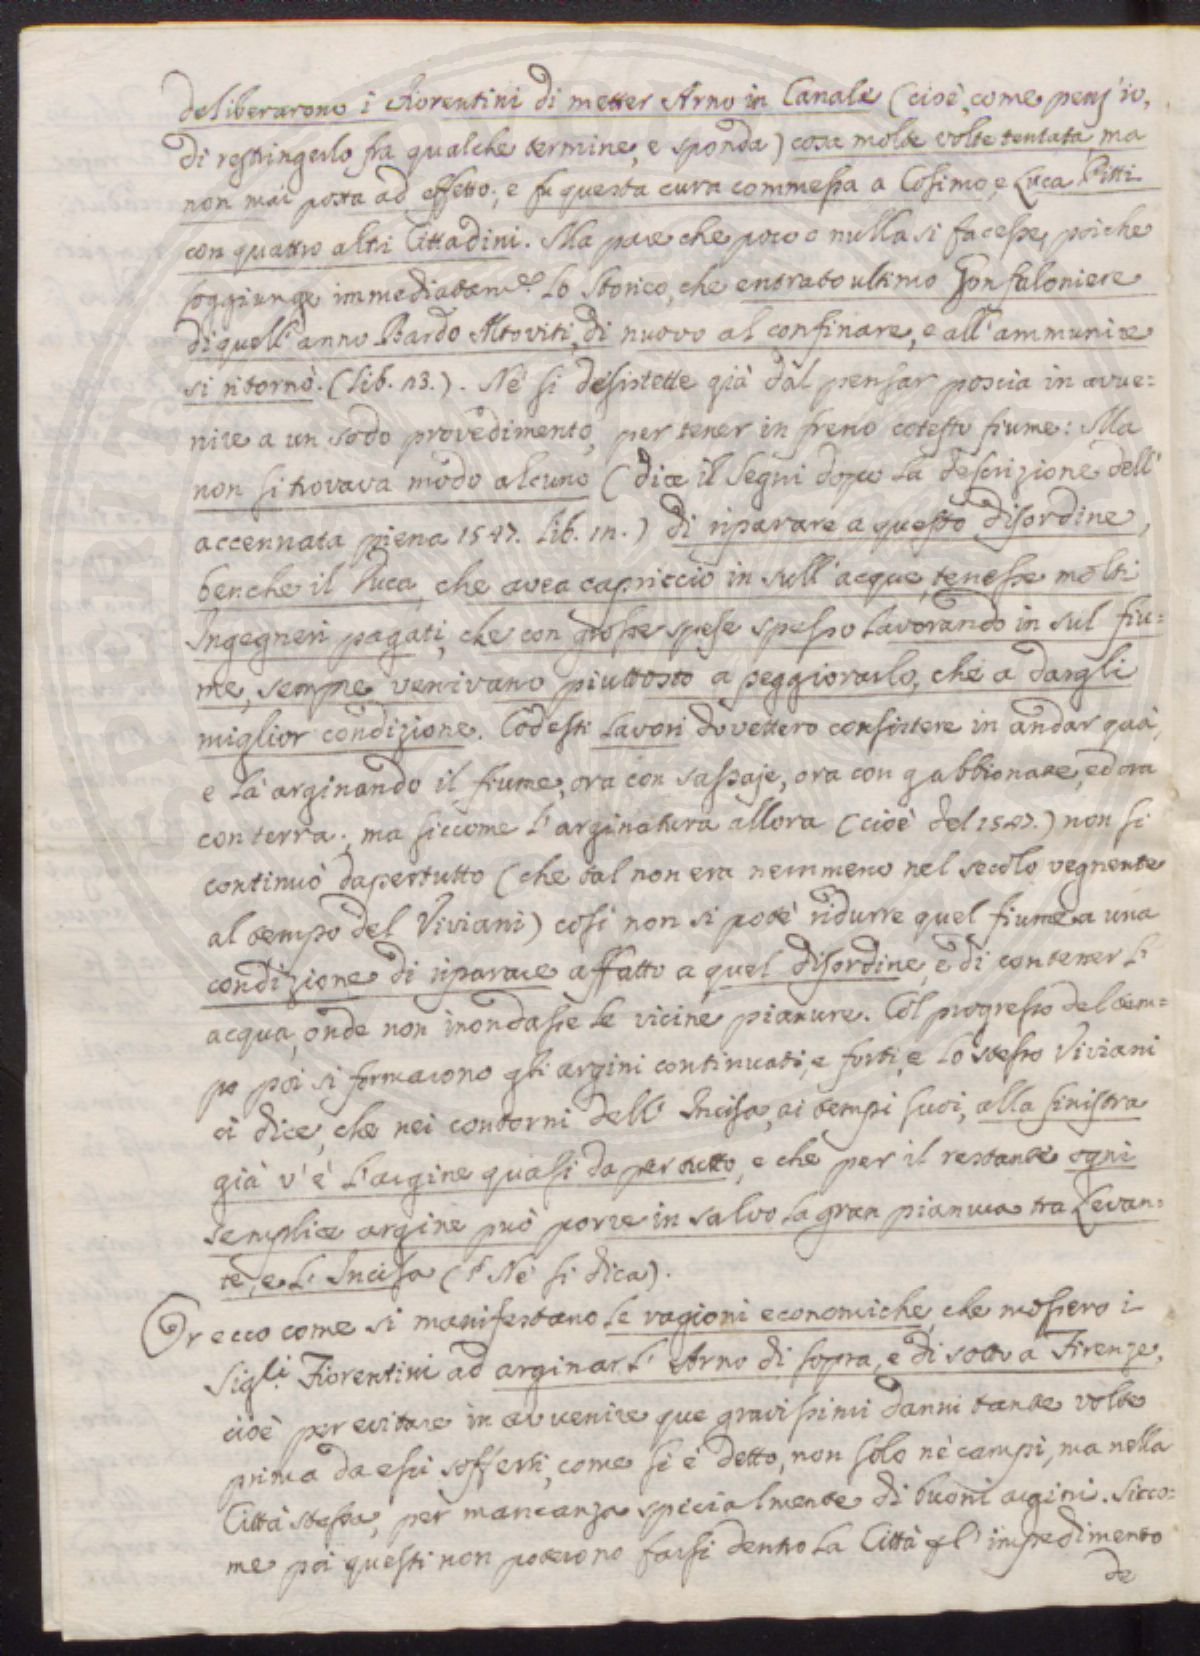 deliberarono i Fiorentini di metter Arno in Canale (cioè, come pens'io,
di restringerlo fra qualche termine, e sponda) cosa molte volte tentata, ma
non mai posta ad effetto; e fu questa cura commessa a Cosimo, e Luca Pitti
con quattro altri Cittadini. Ma pare che poco o nulla si facesse, poiche
soggiunge immediatam.e lo Storico, che entrato ultimo Gonfaloniere
di quell'anno Bardo Altoviti, di nuovo al confinare, e all'ammunire
si ritornò. (Lib. 13.). Nè si desistette già dal pensar poscia in avve=
nire a un sodo provedimento, per tener in freno cotesto fiume: Ma
non si trovava modo alcuno (dice il Segni dopo la descrizione dell'
accennata piena 1547. Lib. 12.) di riparare a questo disordine,
benche il Duca, che avea capriccio in sull'acque, tenesse molti
Ingegneri pagati, che con grosse spese spesso lavorando in sul fiu=
me, sempre venivano piuttosto a peggiorarlo, che a dargli
miglior condizione. Codesti lavori dovettero consistere in andar quà,
e là arginando il fiume, ora con sassaje, ora con gabbionate, ed ora
con terra; ma siccome l'arginatura allora (cioè del 1547.) non si
continuò dapertutto (che tal non era nemmeno nel secolo vegnente
al tempo del Viviani) così non si potè ridurre quel fiume a una
condizione di riparare affatto a quel disordine, e di contener l'
acqua, onde non inondasse le vicine pianure. Col progresso del tem=
po poi si formarono gli argini continuati, e forti, e lo stesso Viviani
ci dice, che nei contorni dell'Incisa, ai tempi suoi, alla sinistra
già v'è l'argine quasi da per tutto, e che per il restante ogni
semplice argine può porre in salvo la gran pianura tra Levan=
te, e l'Incisa (§ Nè si dica).
Or ecco come si manifestano le ragioni economiche, che mossero i
Sigli. Fiorentini ad arginar l'Arno di sopra, e di sotto a Firenze,
cioè per evitare in avvenire que gravissimi danni tante volte
prima da essi sofferti, come si è detto, non solo nè campi, ma nella
Città stessa, per mancanza specialmente di buoni argini. Sicco=
me poi questi non potevono farsi dentro la Città p l'impedimento
de